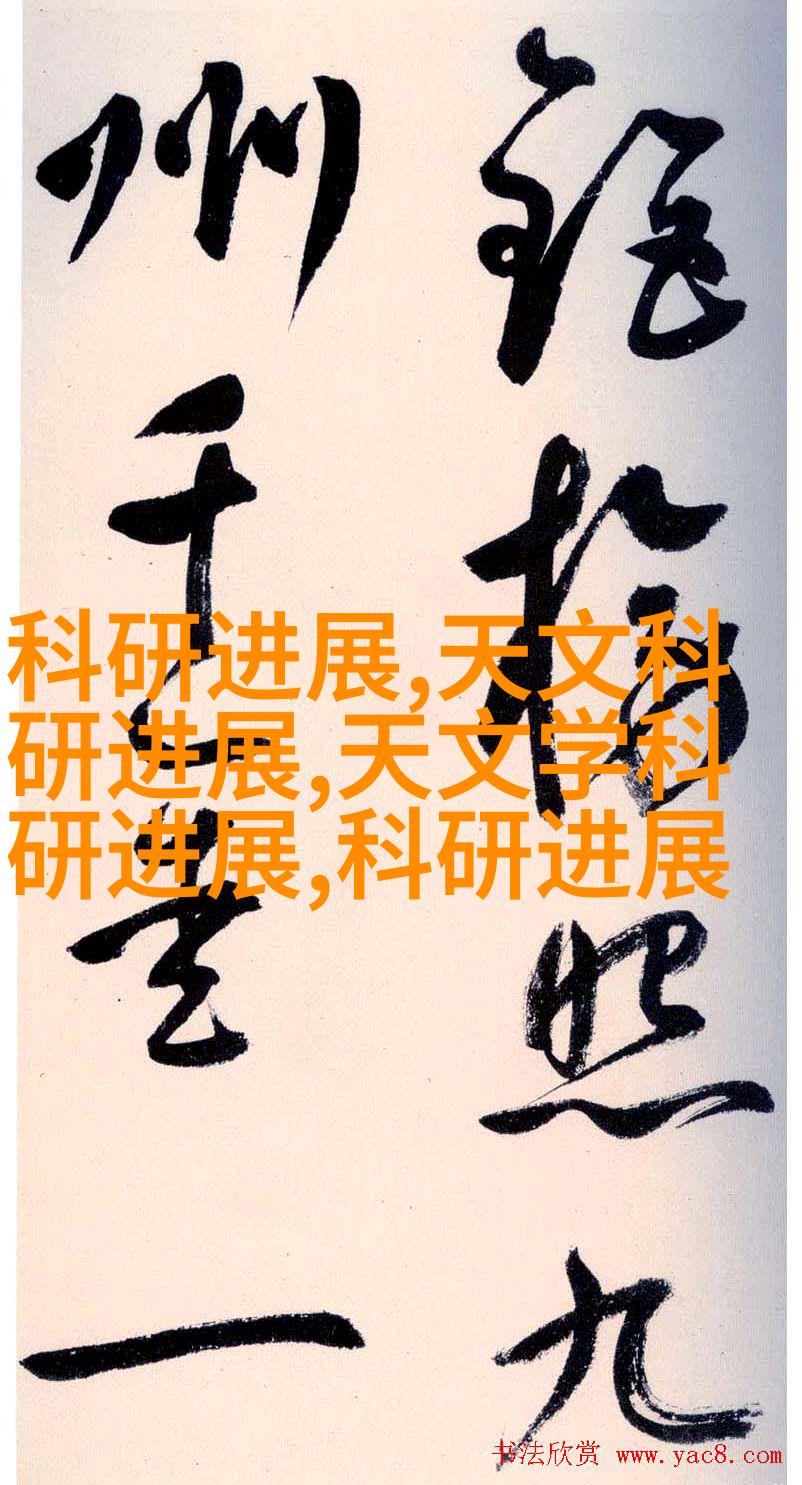 照九
州千一
科研进展,天文科
研进展,天文学科
研进展,科研进展
书法欣赏 www.yac8.com